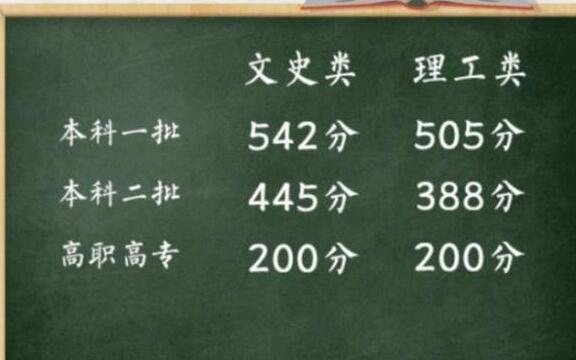 文史类 理工类
本科一批 542分 505分
本科二批 445分 388分
高职高专 200分 200分